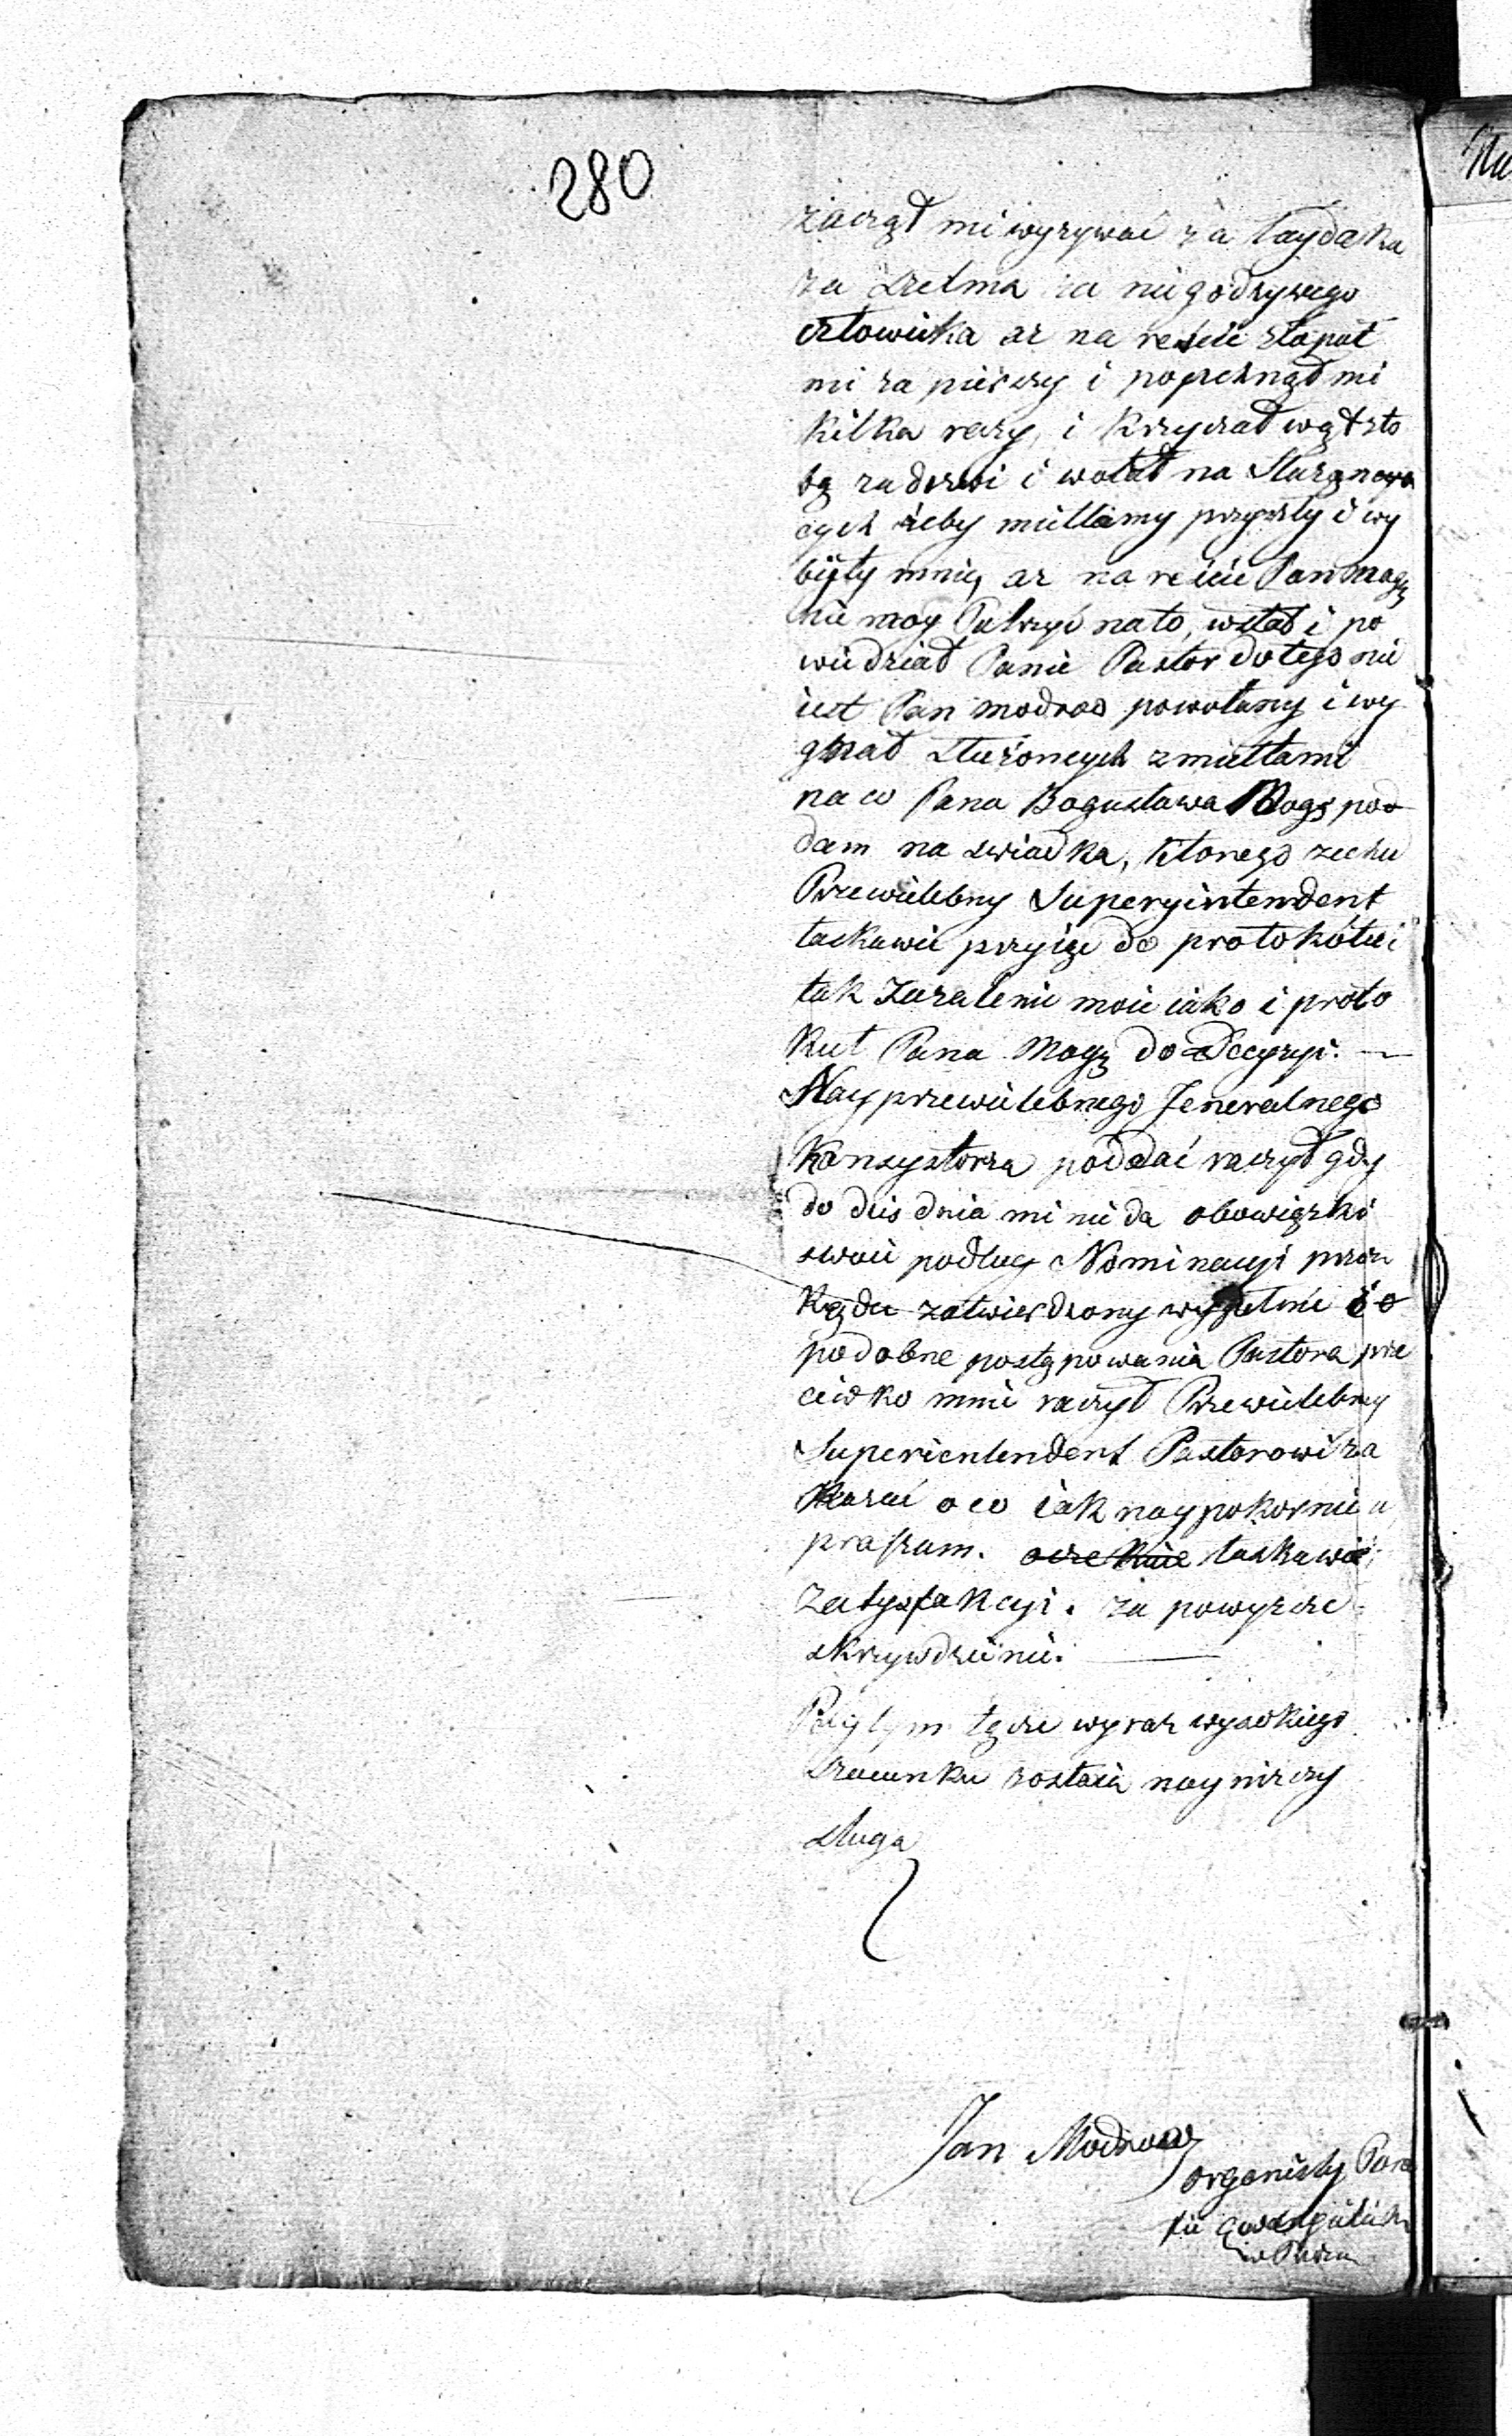 280
zaczął mi wyzywać za łaydaka
za szelma za niegodzywego
człowieka az na reście złapał
mi za pierszy i popchnął mi
kilka razy, i krzyczał wąt zto
bą za drzwi i wołał na Służąncy
cych żeby miétłamy przyszły i wy
biły mnie, az na reście Pan Magę
nie mog Patrzyć na to, wstał i po
wiedział Panie Pastor do tego nie
iest Pan modrow powołany i wy
gnał służoncych z mietłami
na co Pana Bogusława Magę pod
dam na swiadka, ktorego zechce
Przewielebny Superyintendent
łaskawie przyiąc do protokółu i
tak Zazalenie moie iako i proto
kuł Pana Magę do Decyzyi. —
Nayprzewielebnego Jeneralnego
Konsystorza poddać raczył gdy
do dzis dnia mi nie da obowiązki
swoie podług Nominacyi przez
Rządu zatwierdzony wypełnić i o
podobne postępowania Pastora prze
ciwko mnie raczył Przewielebny
Superientendent Pastorowi za
kazać o co iak naypokornie u
praszam. łaskawie
Zatysfakcyi. za powyzsze
skrzywdzenie.
Przytym łącze wyraz wysokiego
szacunku zostaia nayniższy
sługa
Jan Modrow
organisty Para
fii Ewangielick
w